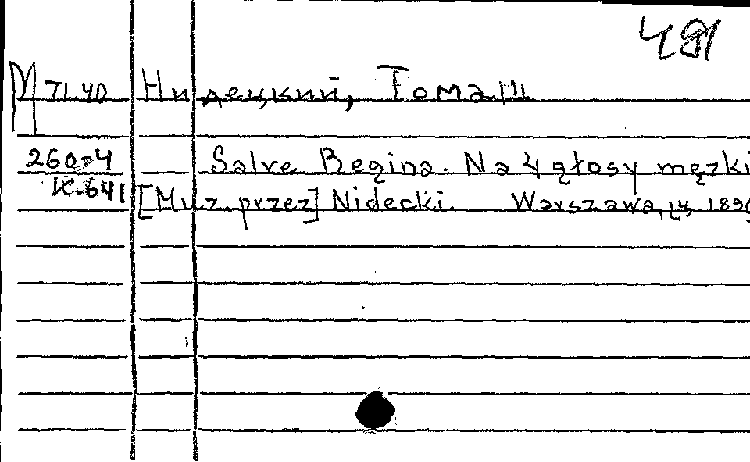 481
М 71 40 Нидецкий, Томаш
260=4 Salve Regina. Na 4 głosy męzki
К-641 [Muz. przez] Nidecki. Warszawa,